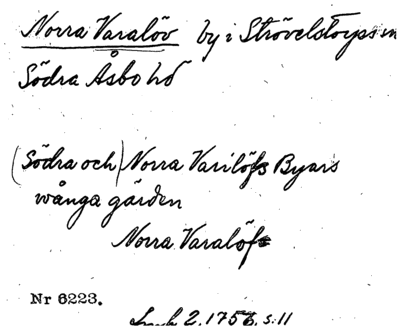 Norra Varalöv by i Strövelstorps sn
Södra Åsbo hd
(Södra och) Norra Varilöfs Byars
wånga gärden
Norra Varalöfs
Nr 6223.
2, 1756, s: 11